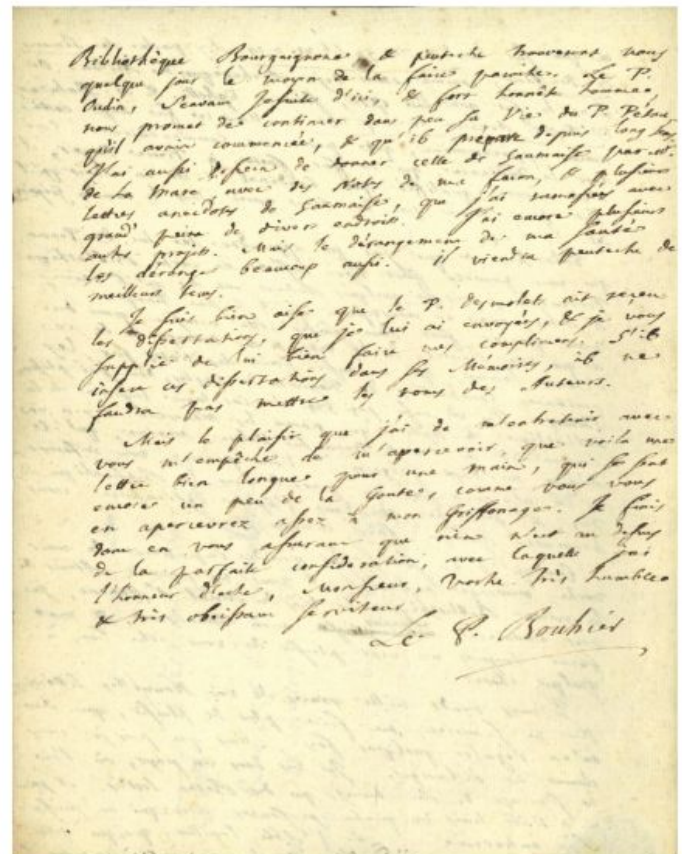 Bibliothèque Bourguignone & peutestre trouverons nous
quelque jour le moyen de la faire paroitre. Le P.
Oudin, sçavant Jesuite d'ici, & fort honnête homme,
nous promet de continuer dans peu sa Vie du P. Pétau
qu'il avoit commencée, & qu'il prépare depuis long tems
J'ai aussi dessein de donner celle de Saumaise par M.
de La Mare avec des Notes de ma façon, & plusieurs
lettres anecdotes de Saumaise, que j'ai ramassées avec
grand' peine de divers endroits. J'ai encore plusieurs
autres projets. Mais le dérangement de ma santé
les dérange beaucoup aussi. Il viendra peutestre de
meilleurs tems.
Je suis bien aise que le P. Desmolets ait receu
les dissertations, que je lui ai envoyées, & je vous
supplie de lui bien faire mes complimens. S'il
insere ces dissertations dans ses Mémoires, il ne
faudra pas mettre les noms des Auteurs.
Mais le plaisir que j'ai de m'entretenir avec
vous m'empêche de m'apercevoir, que voila une
lettre bien longue pour une main, qui se sent
encore un peu de la Goute, comme vous vous
en apercevrez assez à mon griffonage. Je finis
donc en vous assurant que rien n'est au dessus
de la parfaite consideration, avec laquelle j'ai
l'honneur d'estre, Monsieur, Vostre très humble
& très obeissant serviteur
Le P. Bouhier